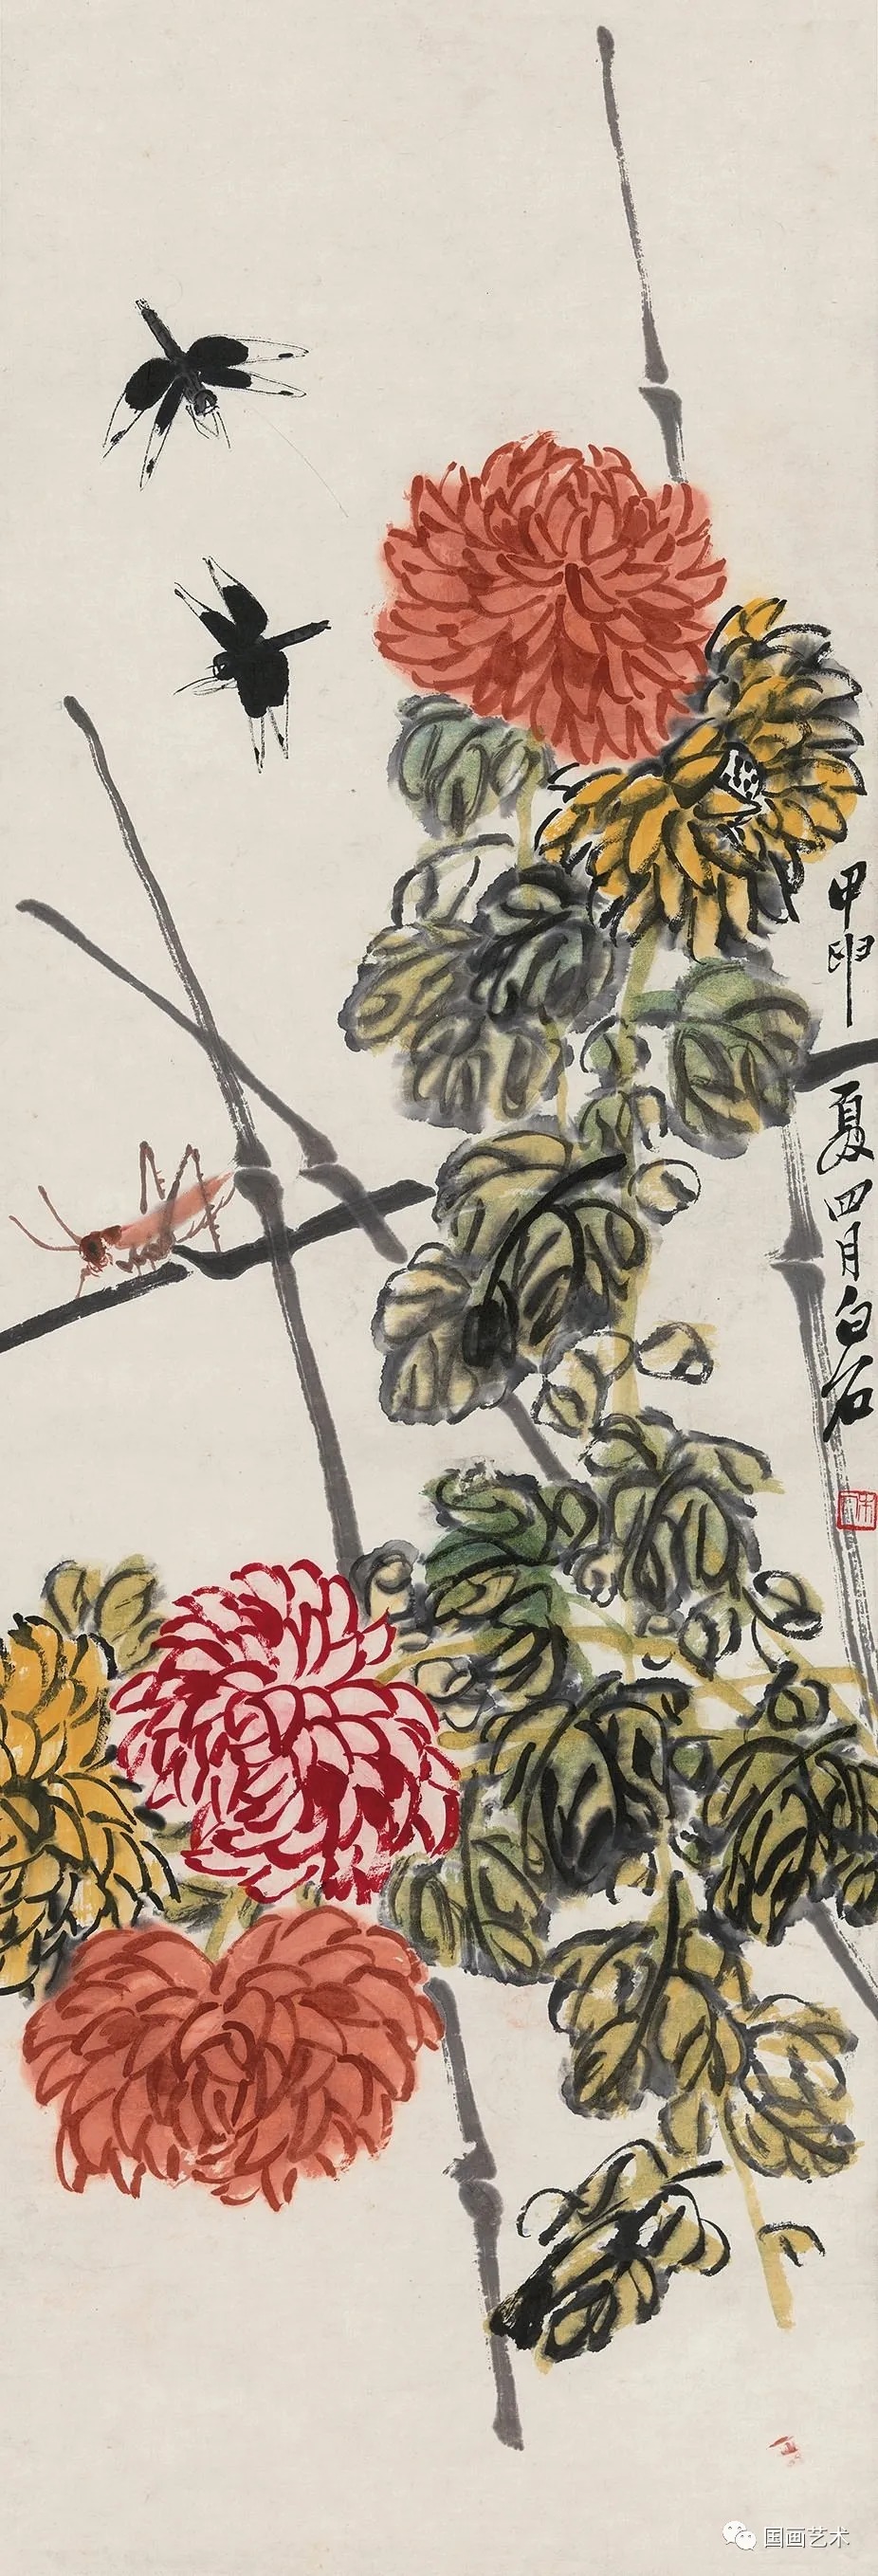 甲申夏四月白石
国画艺术